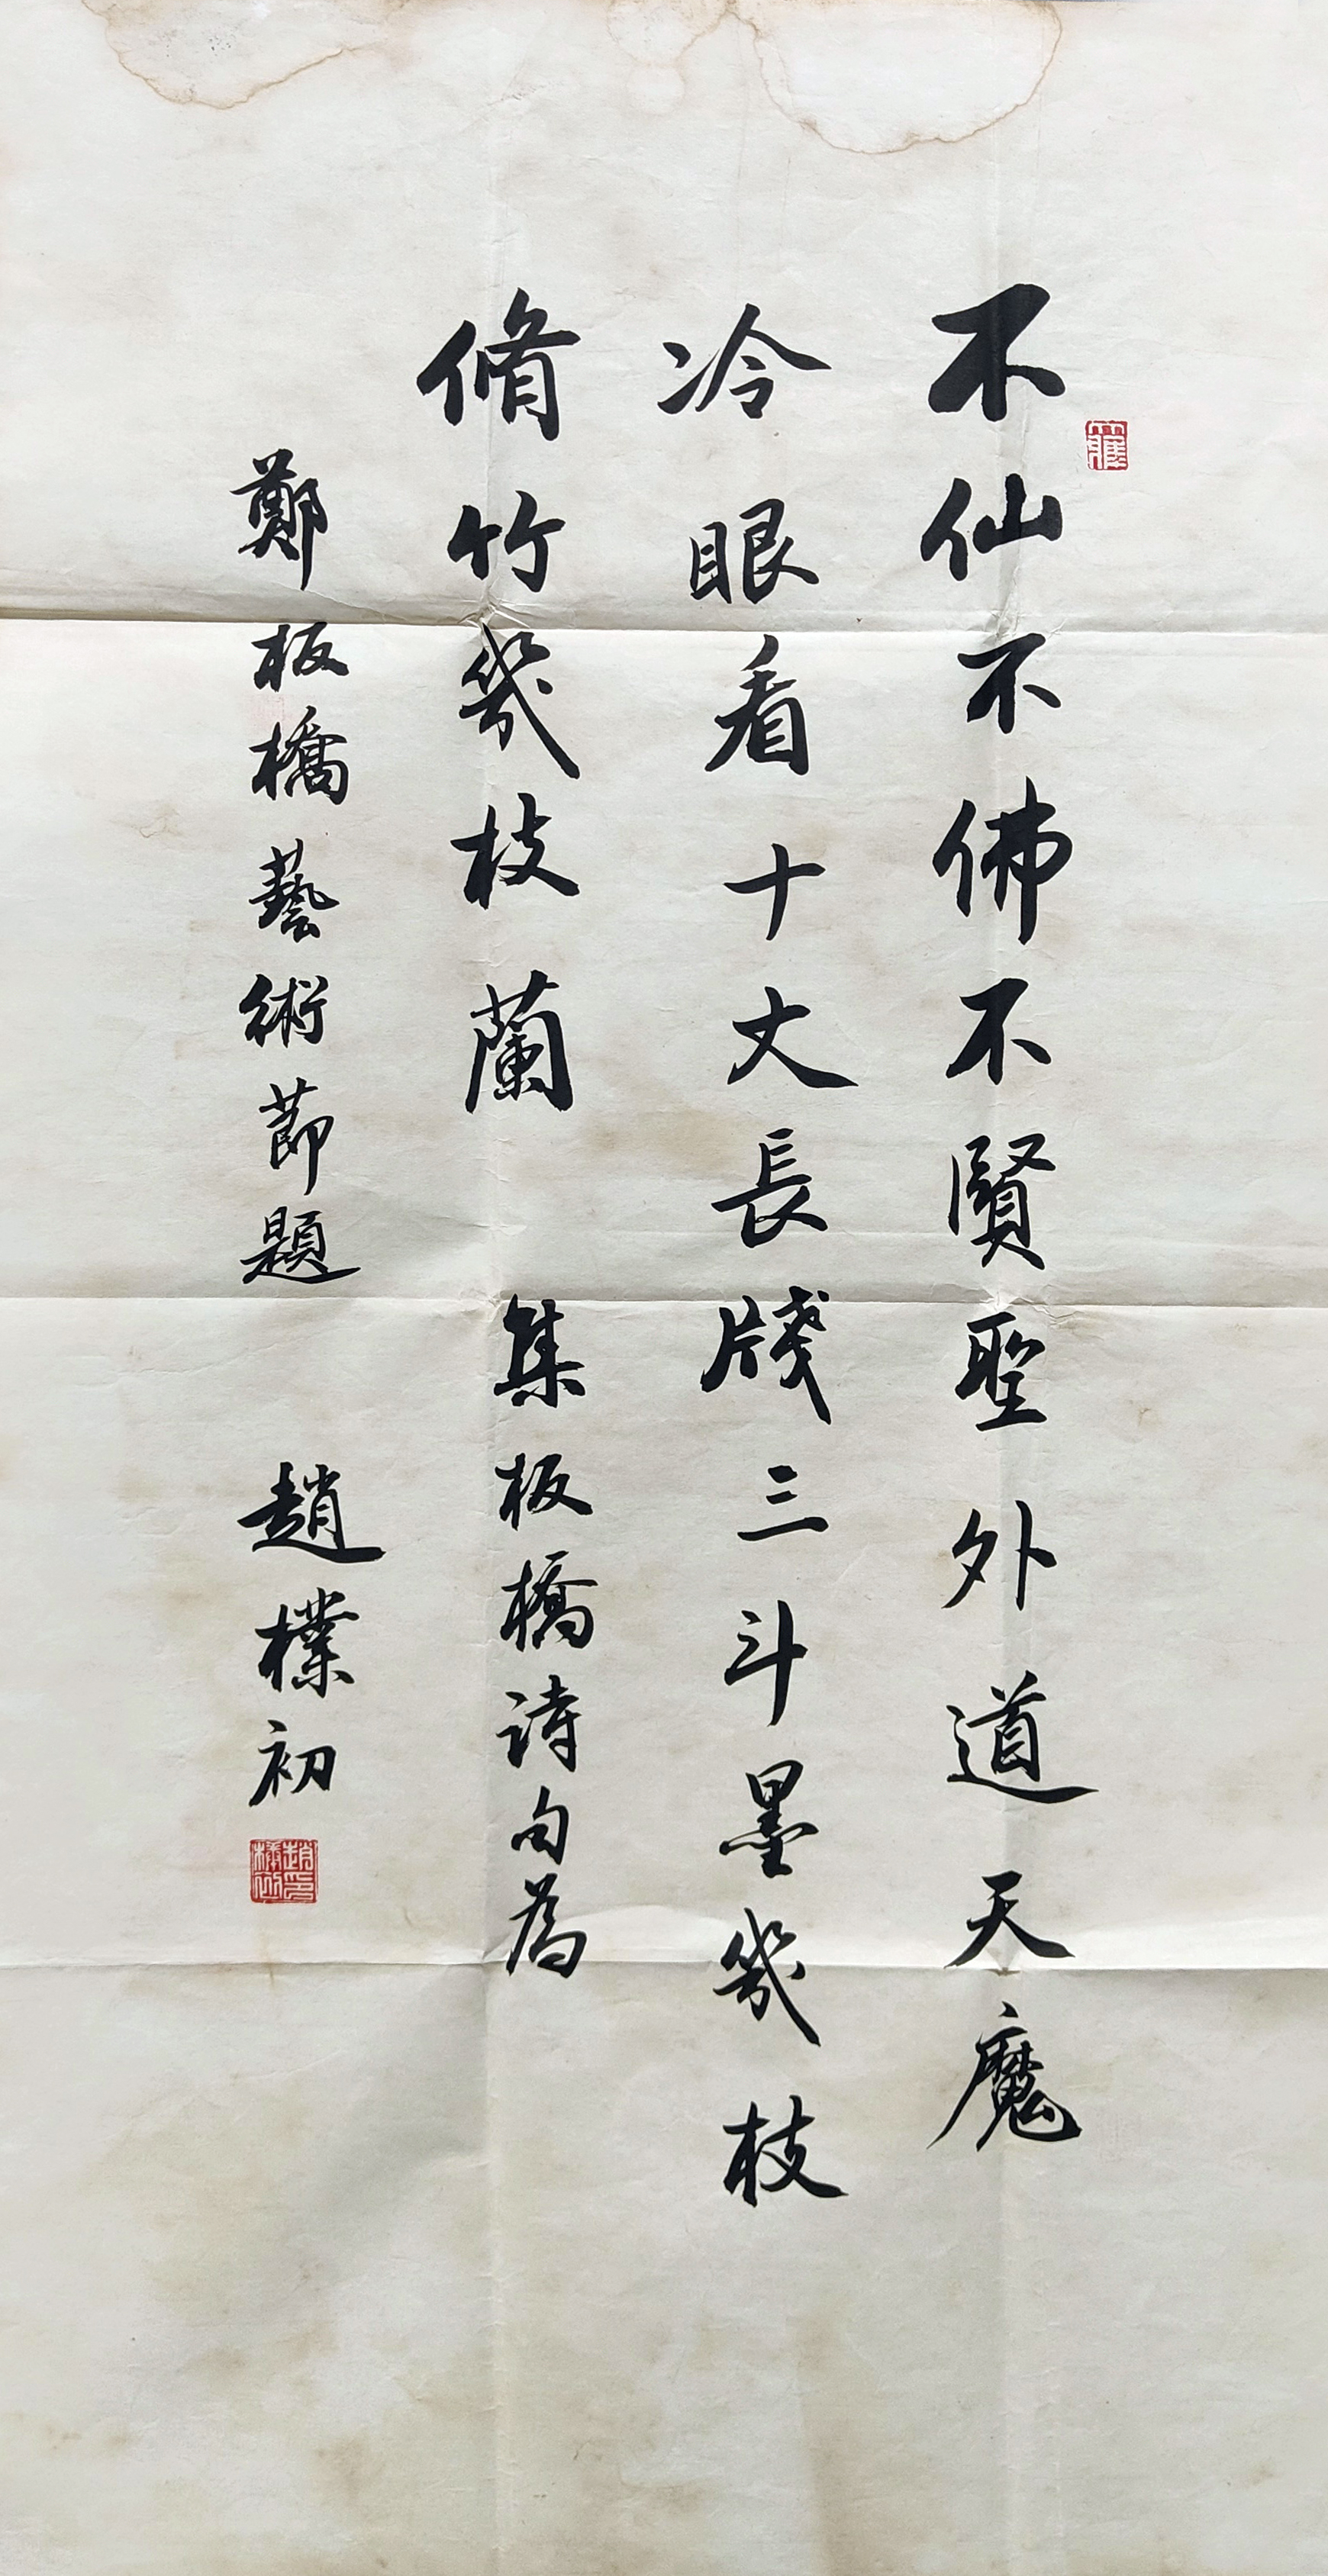 不仙不佛不賢聖外道天魔
冷眼看十丈長牋三斗墨幾枝
脩竹幾枝蘭 集板橋詩句為
鄭板橋藝術節題 趙樸初
趙樸初印